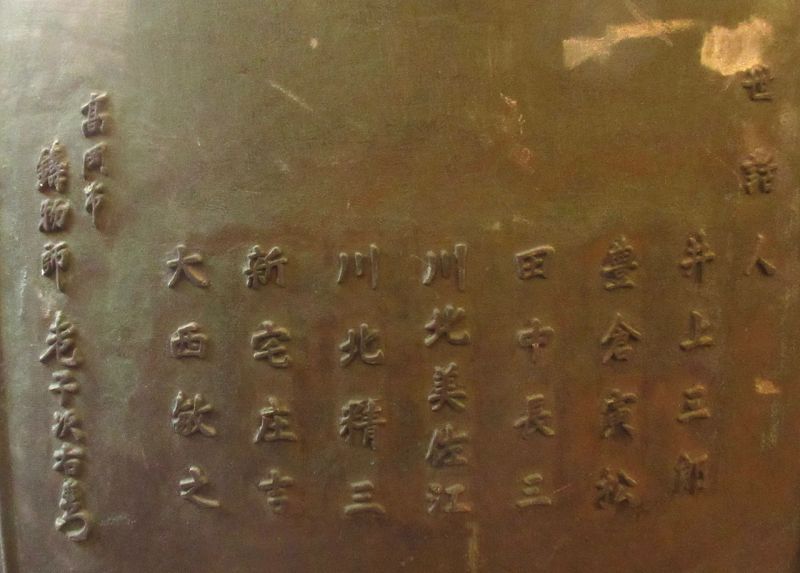 世話人
井上三郎
豊倉寅松
田中長三
川北美佐江
川北精三
新宅庄吉
大西敏之
高岡市
鋳物師 老子次右衛門